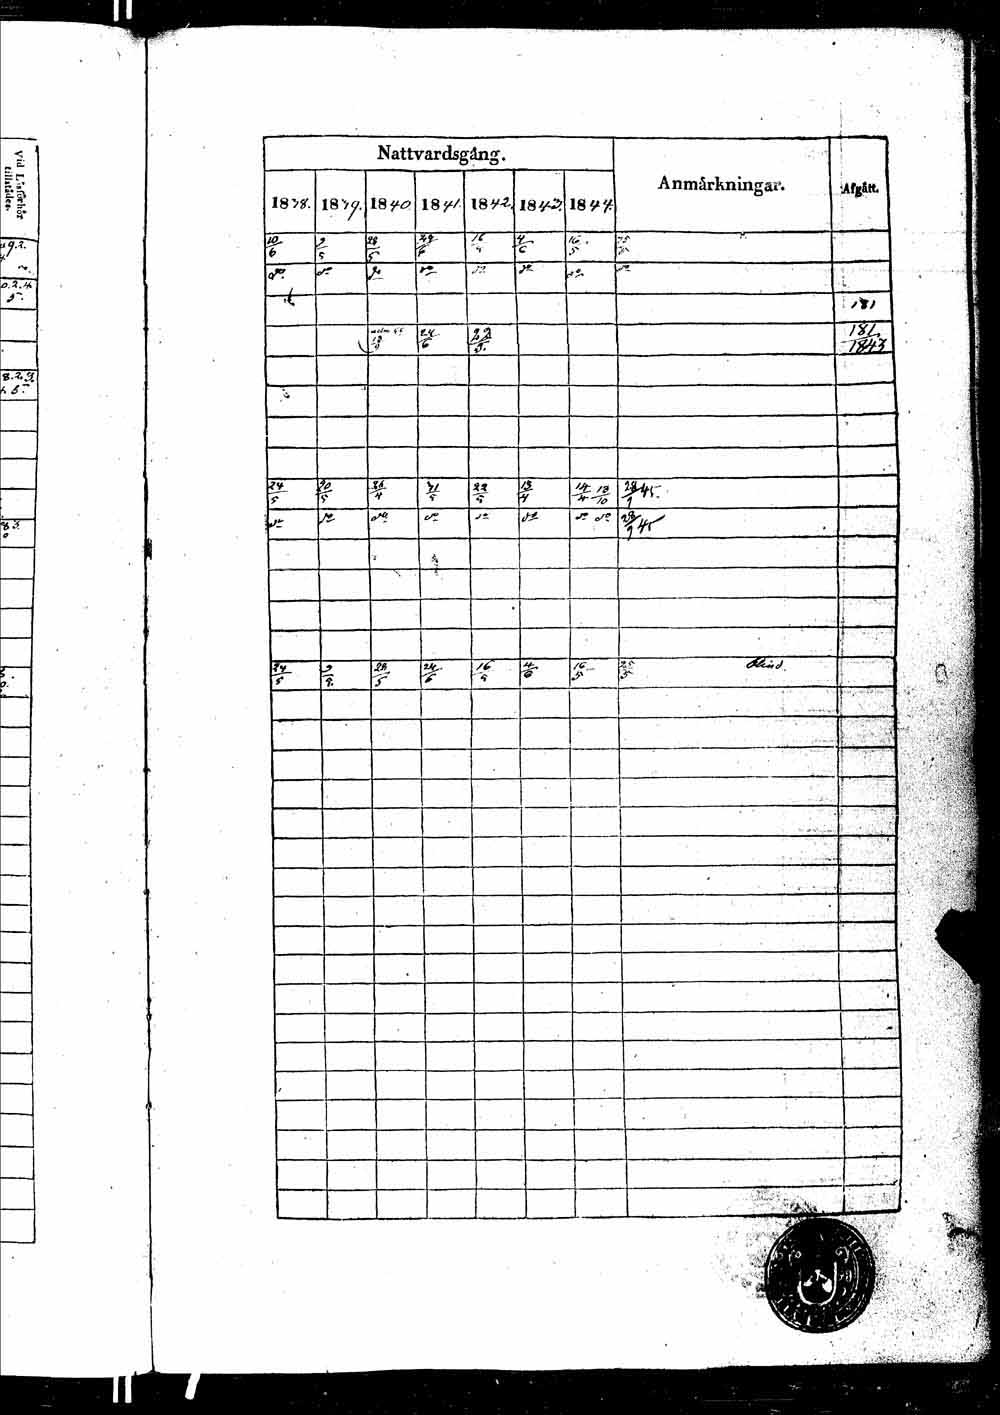 Vid Läsförhör
tillstädes.
Nattvardsgång.
Anmärkningar.
Afgått.
1838. 1839. 1840 1841. 1842. 1843. 1844.
10/6 9/5 28/5 24/6 16/5 4/6 16/5 25/5
do do do do do do do do
181
24/6 22/5 181
1843
8.2.9.
24/5 20/5 26/4 31/5 22/5 13/4 14/4 13/10 28/9 45.
do do do do do do do do 28/9 45
24/5 9/5 28/5 24/6 16/5 4/6 16/5 25/5 blind.